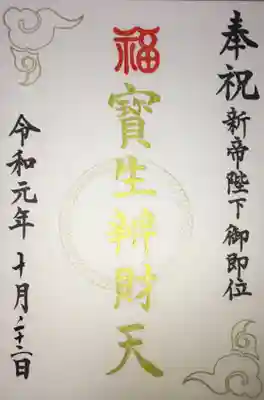 奉祝 新帝陛下御即位
福
寶生辨財天
令和元年 十月 二十二日